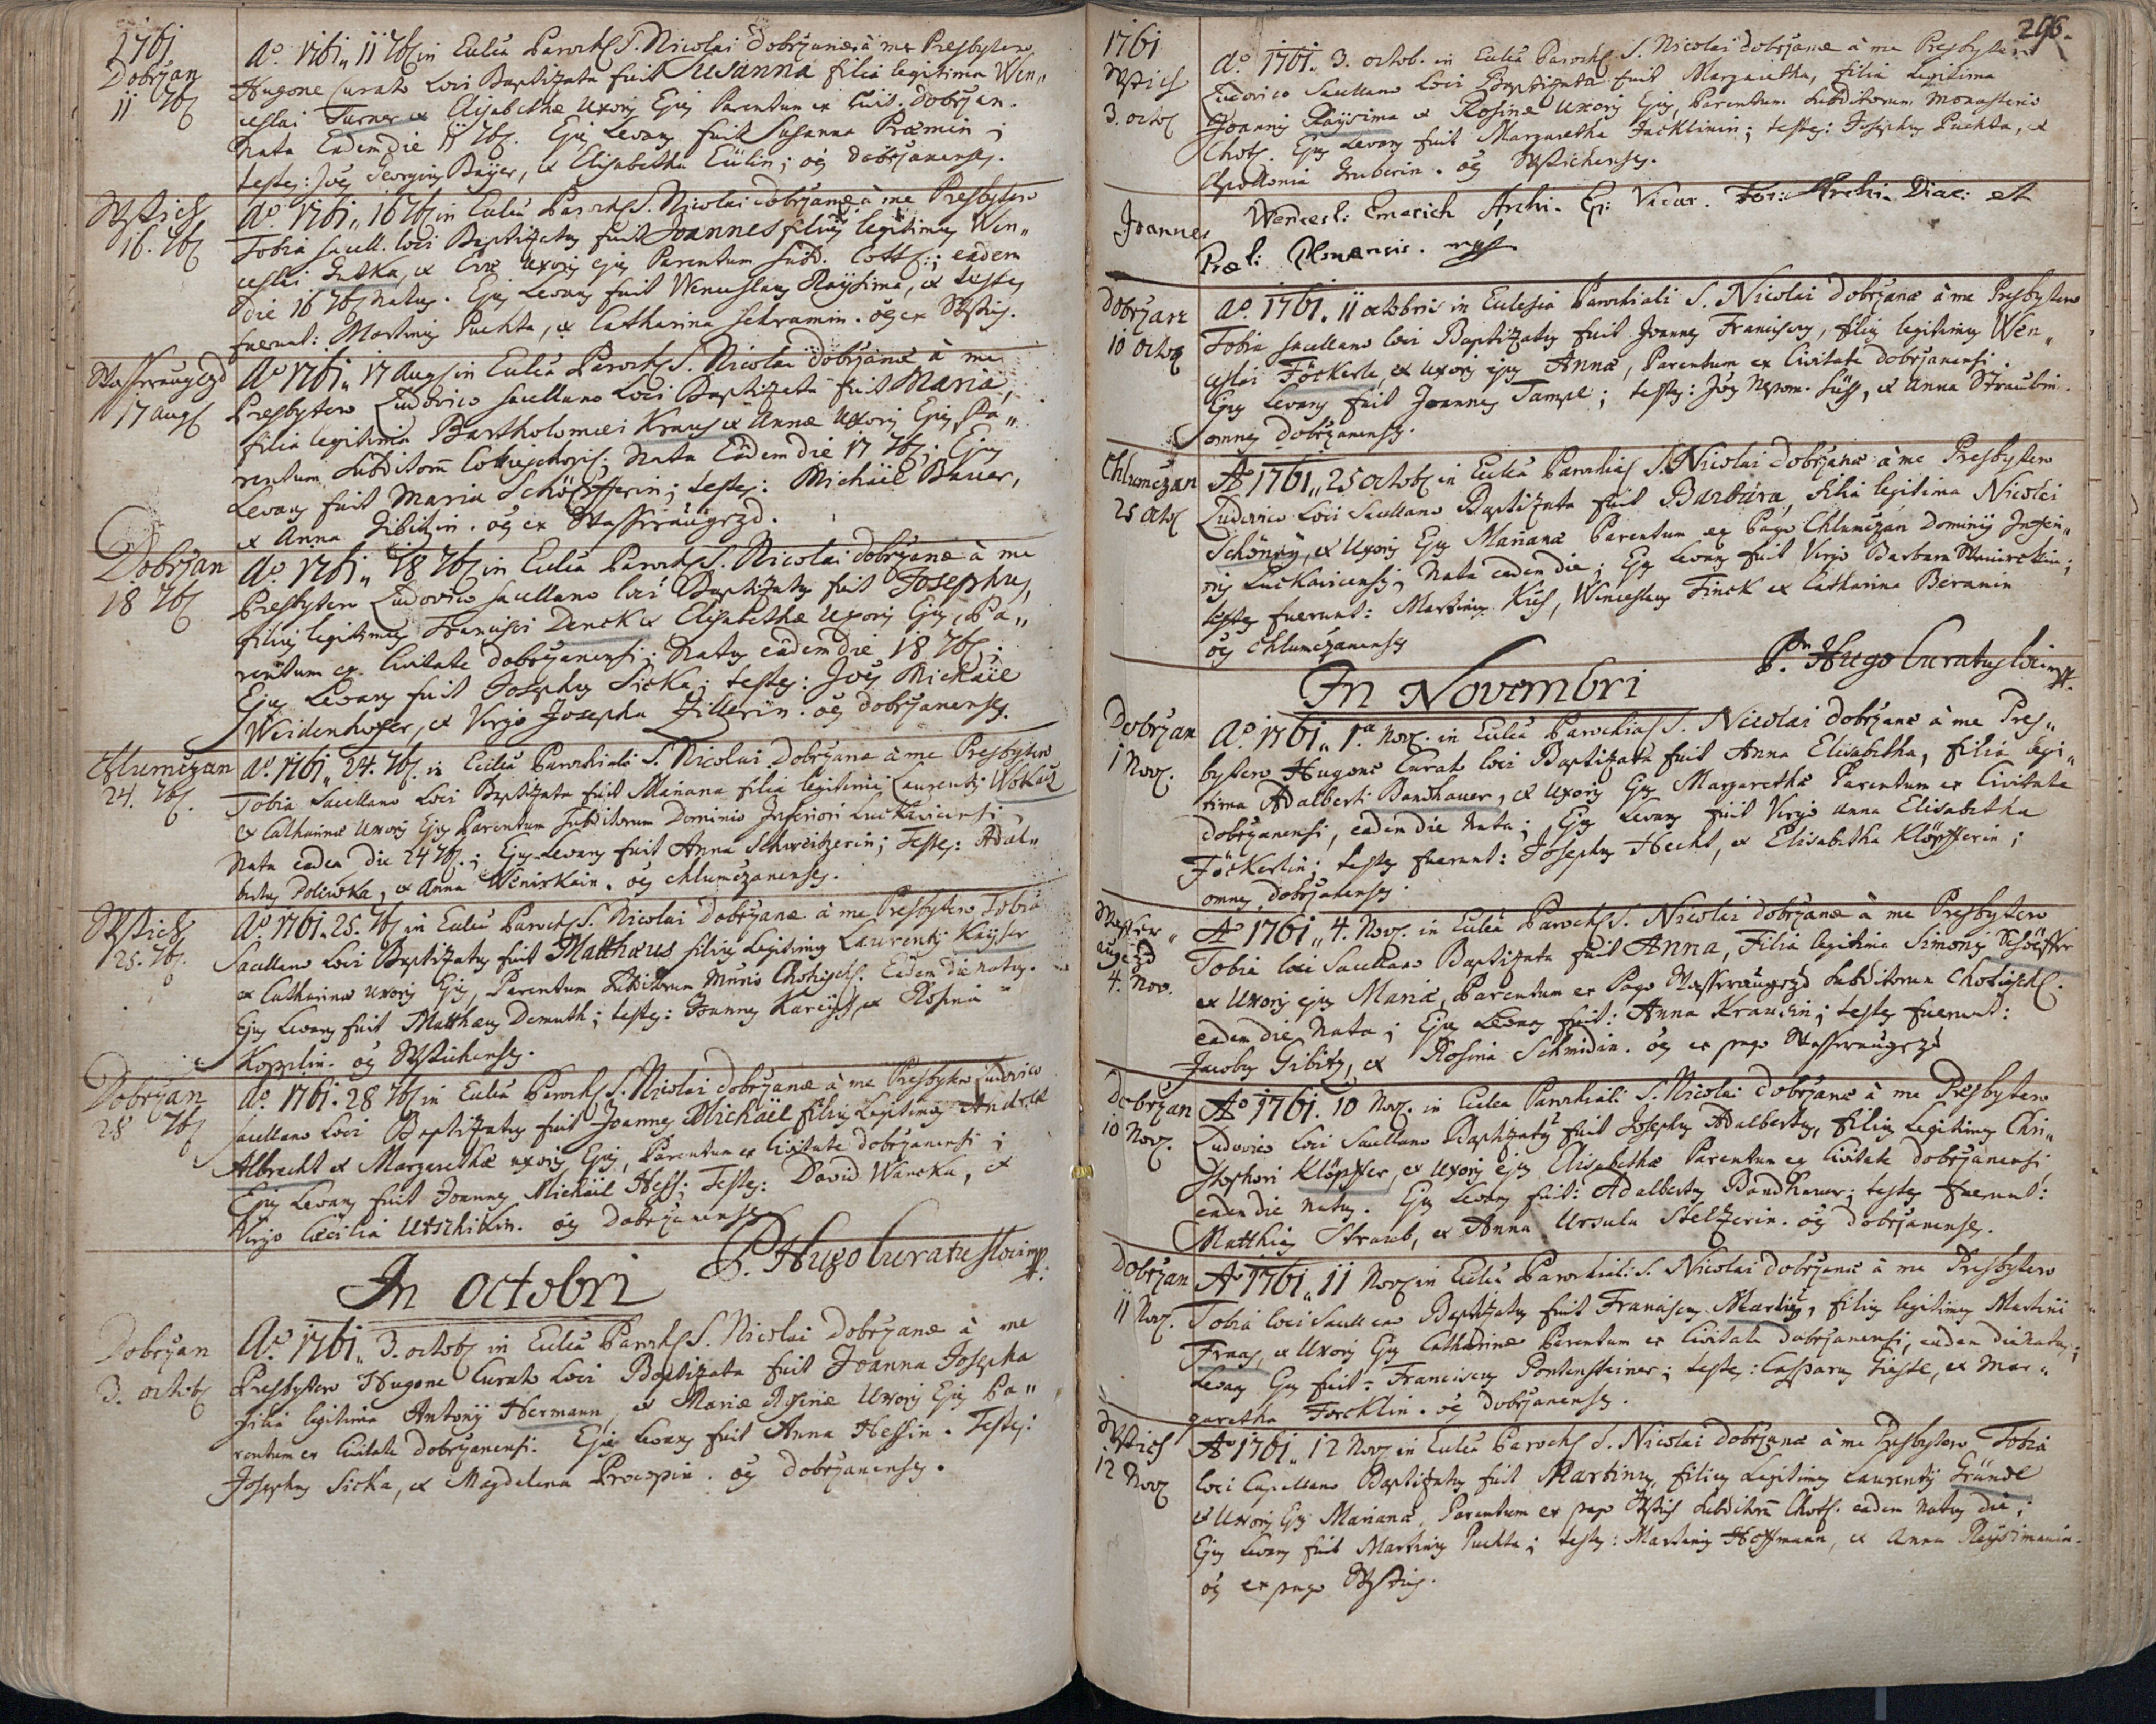 1761
Dobrzan
11 7b
Ao. 1761 „ 11 7b in Ecclia Paroch S. Nicolai Dobrzanæ à me Presbytero
Hugone Curato Loci Baptizata fuit Susanna filia legitima Wen„
ceslai Turner & Elisabethæ Uxoris Ejus Parentum ex Civit. Dobrzan.
Nata Eadem die 11 7b. Ejus Levans fuit Susanna Præmin ;
testes: Joes Georgius Bayer, & Elisabetha Eülin ; oes Dobrzanenses.
Wstich
16. 7b
Ao. 1761 „ 16 7b in Ecclia Paroch S. Nicolai Dobrzanæ à me Presbytero
Tobia Sacell. loci Baptizatus fuit Joannes filius legitimus Wen„
ceslai Hutka, & Evæ Uxoris ejus Parentum Subd. Cott: ; eadem
die 16 7b Natus. Ejus Levans fuit Wenceslaus Raysima, & testes
fuerunt: Martinus Puchta, & Catharina Schramin. oes ex Wstich.
Wasseraugezd
17 Aug
Ao 1761 „ 17 Aug in Ecclia Paroch S. Nicolai Dobrzanæ à me
Presbytero Ludovico Sacellano Loci Baptizata fuit Maria,
filia legitima Bartholomæi Kraus & Annæ Uxoris Ejus, Pa„
rentum Subditorum Nata Eadem die 17 7b ; Ejus
Levans fuit Maria Schöpfferin ; testes: Michäel Bauer,
& Anna Gibitzin. oes ex Wasseraugezd.
Dobrzan
18 7b
Ao. 1761 „ 18 7b in Ecclia Paroch S. Nicolai Dobrzanæ à me
Presbytero Ludovico Sacellano loci Baptizatus fuit Josephus,
filius legitimus Francisci Denck & Elisabethæ Uxoris Ejus, Pa„
rentum ex Civitate Dobrzanensi ; Natus eadem die 18 7b ;
Ejus Levans fuit Josephus Sicka ; testes: Joes Michäel
Weidenhoffer, & Virgo Josepha Zillerin. oes Dobrzanenses.
Chlumczan
24. 7b.
Ao. 1761 „ 24. 7b. in Ecclia Parochiali S. Nicolai Dobrzanæ à me Presbytero
Tobia Sacellano Loci Baptizata fuit Mariana filia legitima Laurentij Wokacz
& Catharinæ Uxoris Ejus Parentum Subditorum Dominio Inferiori Luckavicensi
Nata eadem die 24 7b. ; Ejus Levans fuit Anna Schweitzerin ; Testes: Adal„
bertus Polivka, & Anna Wenirkain. oes Chlumczanenses.
Wstich
25. 7b.
Ao. 1761. 25. 7b in Ecclia Paroch S. Nicolai Dobrzanæ à me Presbytero Tobia
Sacellano Loci Baptizatus fuit Matthæus filius Legitimus Laurentij Kayser
& Catharinæ Uxoris Ejus, Parentum Subditorum Eadem die natus.
Ejus Levans fuit Matthæus Demuth ; testes: Joannes & Rosina
Kopplin. oes Wstichenses.
Dobrzan
28 7b
Ao. 1761. 28 7b in Ecclia Paroch S. Nicolai Dobrzanæ à me Presbytero Ludovico
Sacellano Loci Baptizatus fuit Joannes Michäel filius Legitimus Andreæ
Albrecht & Margarethæ uxoris Ejus, Parentum ex Civitate Dobrzanensi ;
Ejus Levans fuit Joannes Michäel Hess ; Testes: David Wancka, &
Virgo Cæcilia oes Dobrzanenses.
P. Hugo Curatus loci mp.
In Octobri
Dobrzan
3. octob
Ao. 1761 „ 3. octob in Ecclia Paroch S. Nicolai Dobrzanæ à me
Presbytero Hugone Curato Loci Baptizata fuit Joanna Josepha
filia legitima Antonij Hermann, & Mariæ Rosinæ Uxoris Ejus Pa„
rentum ex Civitate Dobrzanensi. Ejus Levans fuit Anna Hessin. Testes:
Josephus Sicka, & Magdalena Procopin. oes Dobrzanenses.
296.
1761
Wstich
3. octob
Ao. 1761. 3. octob. in Ecclia Paroch S. Nicolai Dobrzanæ à me Presbytero
Ludovico Sacellano Loci Baptizata fuit Margaretha, filia Legitima
Joannis Raysima & Rosinæ Uxoris Ejus, Parentum Subditorum Monasterio
Chots. Ejus Levans fuit Margaretha Jacklinin ; testes: Josephus Puchta, &
Apollonia Gruberin. oes Wstichenses.
Joannes Wencesl: Emerich Archi. Ep: Vicar. For: Archi. Diac: et
Præl: Plsnensis. mpp
Dobrzan
10 Octob
Ao. 1761. 11 octobris in Ecclesia Parochiali S. Nicolai Dobrzanæ à me Presbytero
Tobia Sacellano loci Baptizatus fuit Joannes Franciscus, filius legitimus Wen„
ceslai Föckerle, & uxoris ejus Annæ, Parentum ex Civitate Dobrzanensi.
Ejus Levans fuit Joannes Tampl ; testes: Joes Nepom. Süss, & Anna Straubin.
omnes Dobrzanenses.
Chlumczan
25 octob
Ao 1761 „ 25 octob in Ecclia Parochial S. Nicolai Dobrzanæ à me Presbytero
Ludovico Loci Sacellano Baptizata fuit Barbara, filia legitima Nicolai
Schönny, & Uxoris Ejus Marianæ Parentum ex Pago Chlumczan Dominij Inferi„
oris Luckavicensis, Nata eadem die ; Ejus Levans fuit Virgo Barbara
testes fuerunt: Martinus Wenceslaus Finck & Catharina Beranin
oes Chlumczanenses
P. Hugo Curatus loci mp.
In Novembri
Dobrzan
1 Nov.
Ao. 1761 „ 1.a Nov. in Ecclia Parochial S. Nicolai Dobrzanæ à me Pres„
bytero Hugone Curato loci Baptizata fuit Anna Elisabetha, filia legi„
tima Adalberti Bandhauer, & Uxoris Ejus Margarethæ Parentum ex Civitate
Dobrzanensi, eadem die Nata ; Ejus Levans fuit Virgo Anna Elisabetha
Föckerlin ; testes fuerunt: Josephus Hecht, & Elisabetha Klöpfferin ;
omnes Dobrzanenses.
Wasser„
augezd
4. Nov.
Ao 1761 „ 4. Nov. in Ecclia Paroch S. Nicolai Dobrzanæ à me Presbytero
Tobia loci Sacellano Baptizata fuit Anna, Filia legitima Simonis Schöpffer
& Uxoris ejus Mariæ, Parentum ex Pago Wasseraugezd Subditorum Chotieschs.
eadem die Nata ; Ejus Levans fuit: Anna Krausin ; testes fuerunt:
Jacobus Gibitz, & Rosina Schmidin. oes ex pago Wasseraugezd
Dobrzan
10 Nov.
Ao 1761. 10 Nov. in Ecclia Parochiali S. Nicolai Dobrzanæ à me Presbytero
Ludovico Loci Sacellano Baptizatus fuit Josephus Adalbertus, filius Legitimus Chri„
stophori Klöpffer, & Uxoris ejus Elisabethæ Parentum ex Civitate Dobrzanensi,
eadem die Natus. Ejus Levans fuit: Adalbertus Bandhauer ; testes fuerunt:
Matthias Straub, & Anna Ursula Stelzerin. oes Dobrzanenses.
Dobrzan
11 Nov.
Ao 1761 „ 11 Nov in Ecclia Parochiali S. Nicolai Dobrzanæ à me Presbytero
Tobia loci Sacellano Baptizatus fuit Franciscus Martinus, filius legitimus Martini
Fraas, & Uxoris Ejus Catharinæ Parentum ex Civitate Dobrzanensi, eadem die natus ;
Levans Ejus fuit: Franciscus Pontensteiner ; testes: Casparus & Mar„
garetha Forcklin. oes Dobrzanenses.
Wstich
12 Nov
Ao 1761 „ 12 Nov in Ecclia Paroch S. Nicolai Dobrzanæ à me Presbytero Tobia
loci Capellano Baptizatus fuit Martinus, filius Legitimus Laurentij Gründl
& Uxoris Ejus Marianæ, Parentum ex pago Wstich Subditorum Chots. eadem Natus die ;
Ejus Levans fuit Martinus Puchta ; testes: Martinus Hoffmann, & Anna Raysimanin.
oes ex pago Wstich.